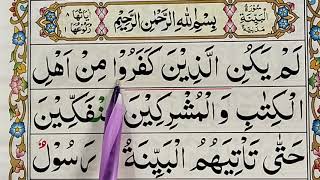 سُورَةُ الْبَيِّنَةِ مَدَنِيَّةٌ
بِسْمِ اللهِ الرَّحْمٰنِ الرَّحِيْمِ
اٰيَاتُهَا ٨ رُكُوْعُهَا
لَمْ يَكُنِ الَّذِيْنَ كَفَرُوْا مِنْ اَهْلِ
الْكِتٰبِ وَ الْمُشْرِكِيْنَ مُنْفَكِّيْنَ
حَتّٰى تَاْتِيَهُمُ الْبَيِّنَةُ رَسُوْلٌ